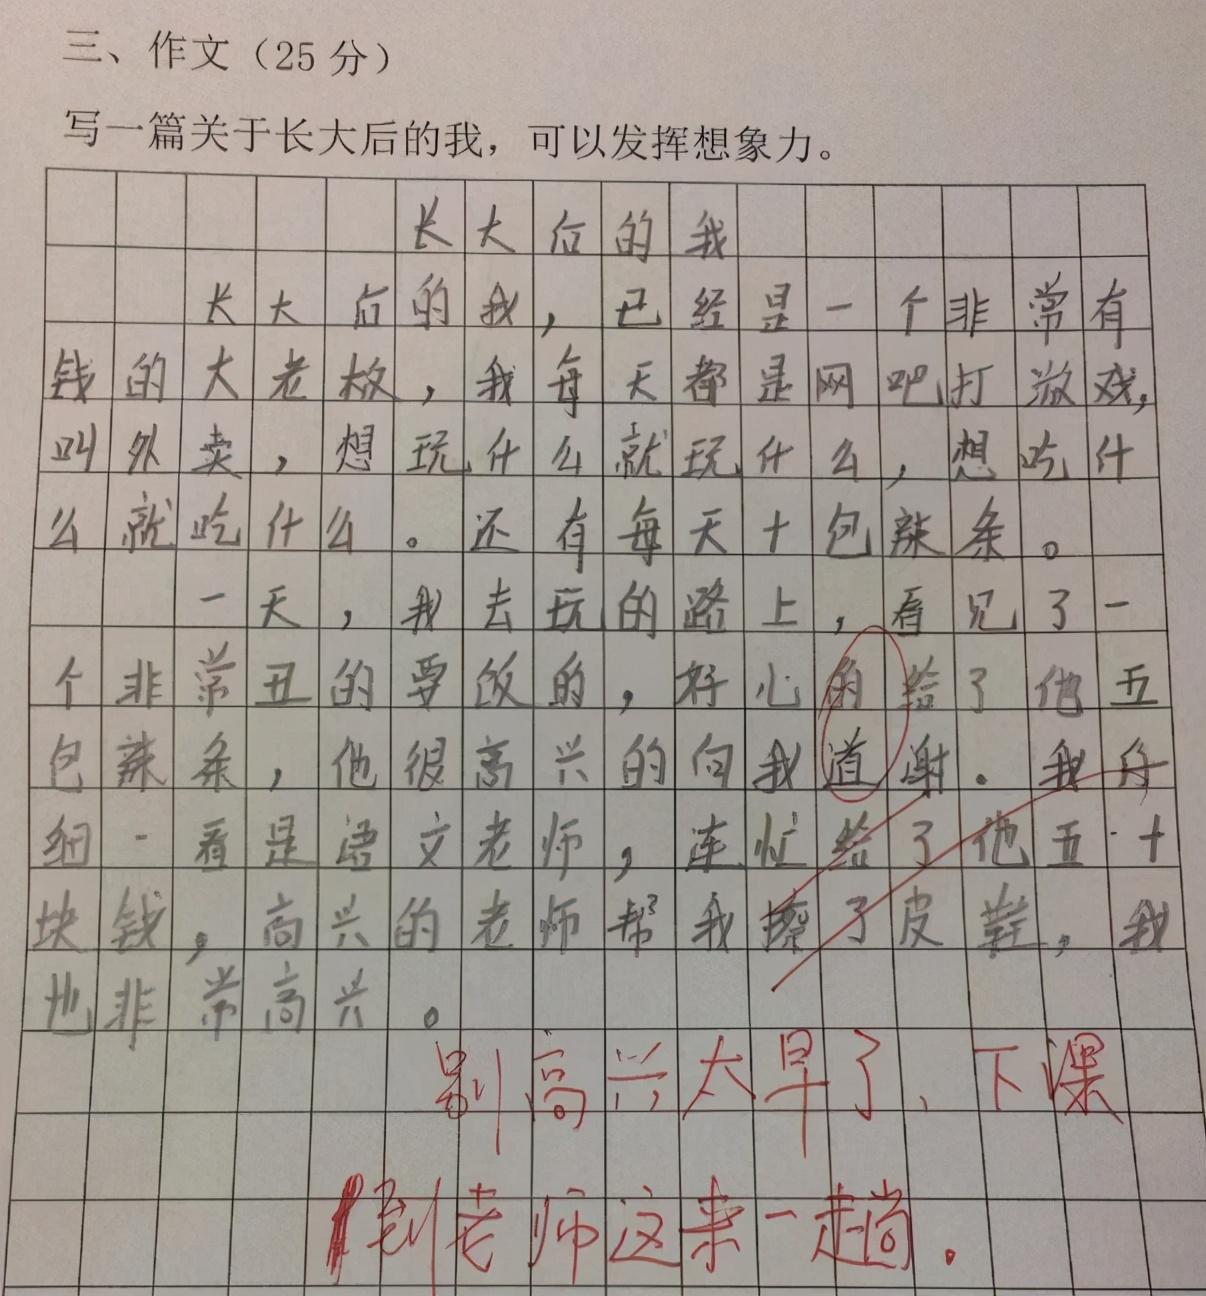 三、作文（25 分）
写一篇关于长大后的我，可以发挥想象力。
长大后的我
长大后的我，已经是一个非常有
钱的大老板，我每天都是网吧打游戏，
叫外卖，想玩什么就玩什么，想吃什
么就吃什么。还有每天十包辣条。
一天，我去玩的路上，看见了一
个非常丑的要饭的，好心的给了他五
包辣条，他很高兴的向我道谢。我仔
细一看是语文老师，连忙给了他五十
块钱，高兴的老师帮我擦了皮鞋，我
也非常高兴。
别高兴太早了、下课
到老师这来一趟.